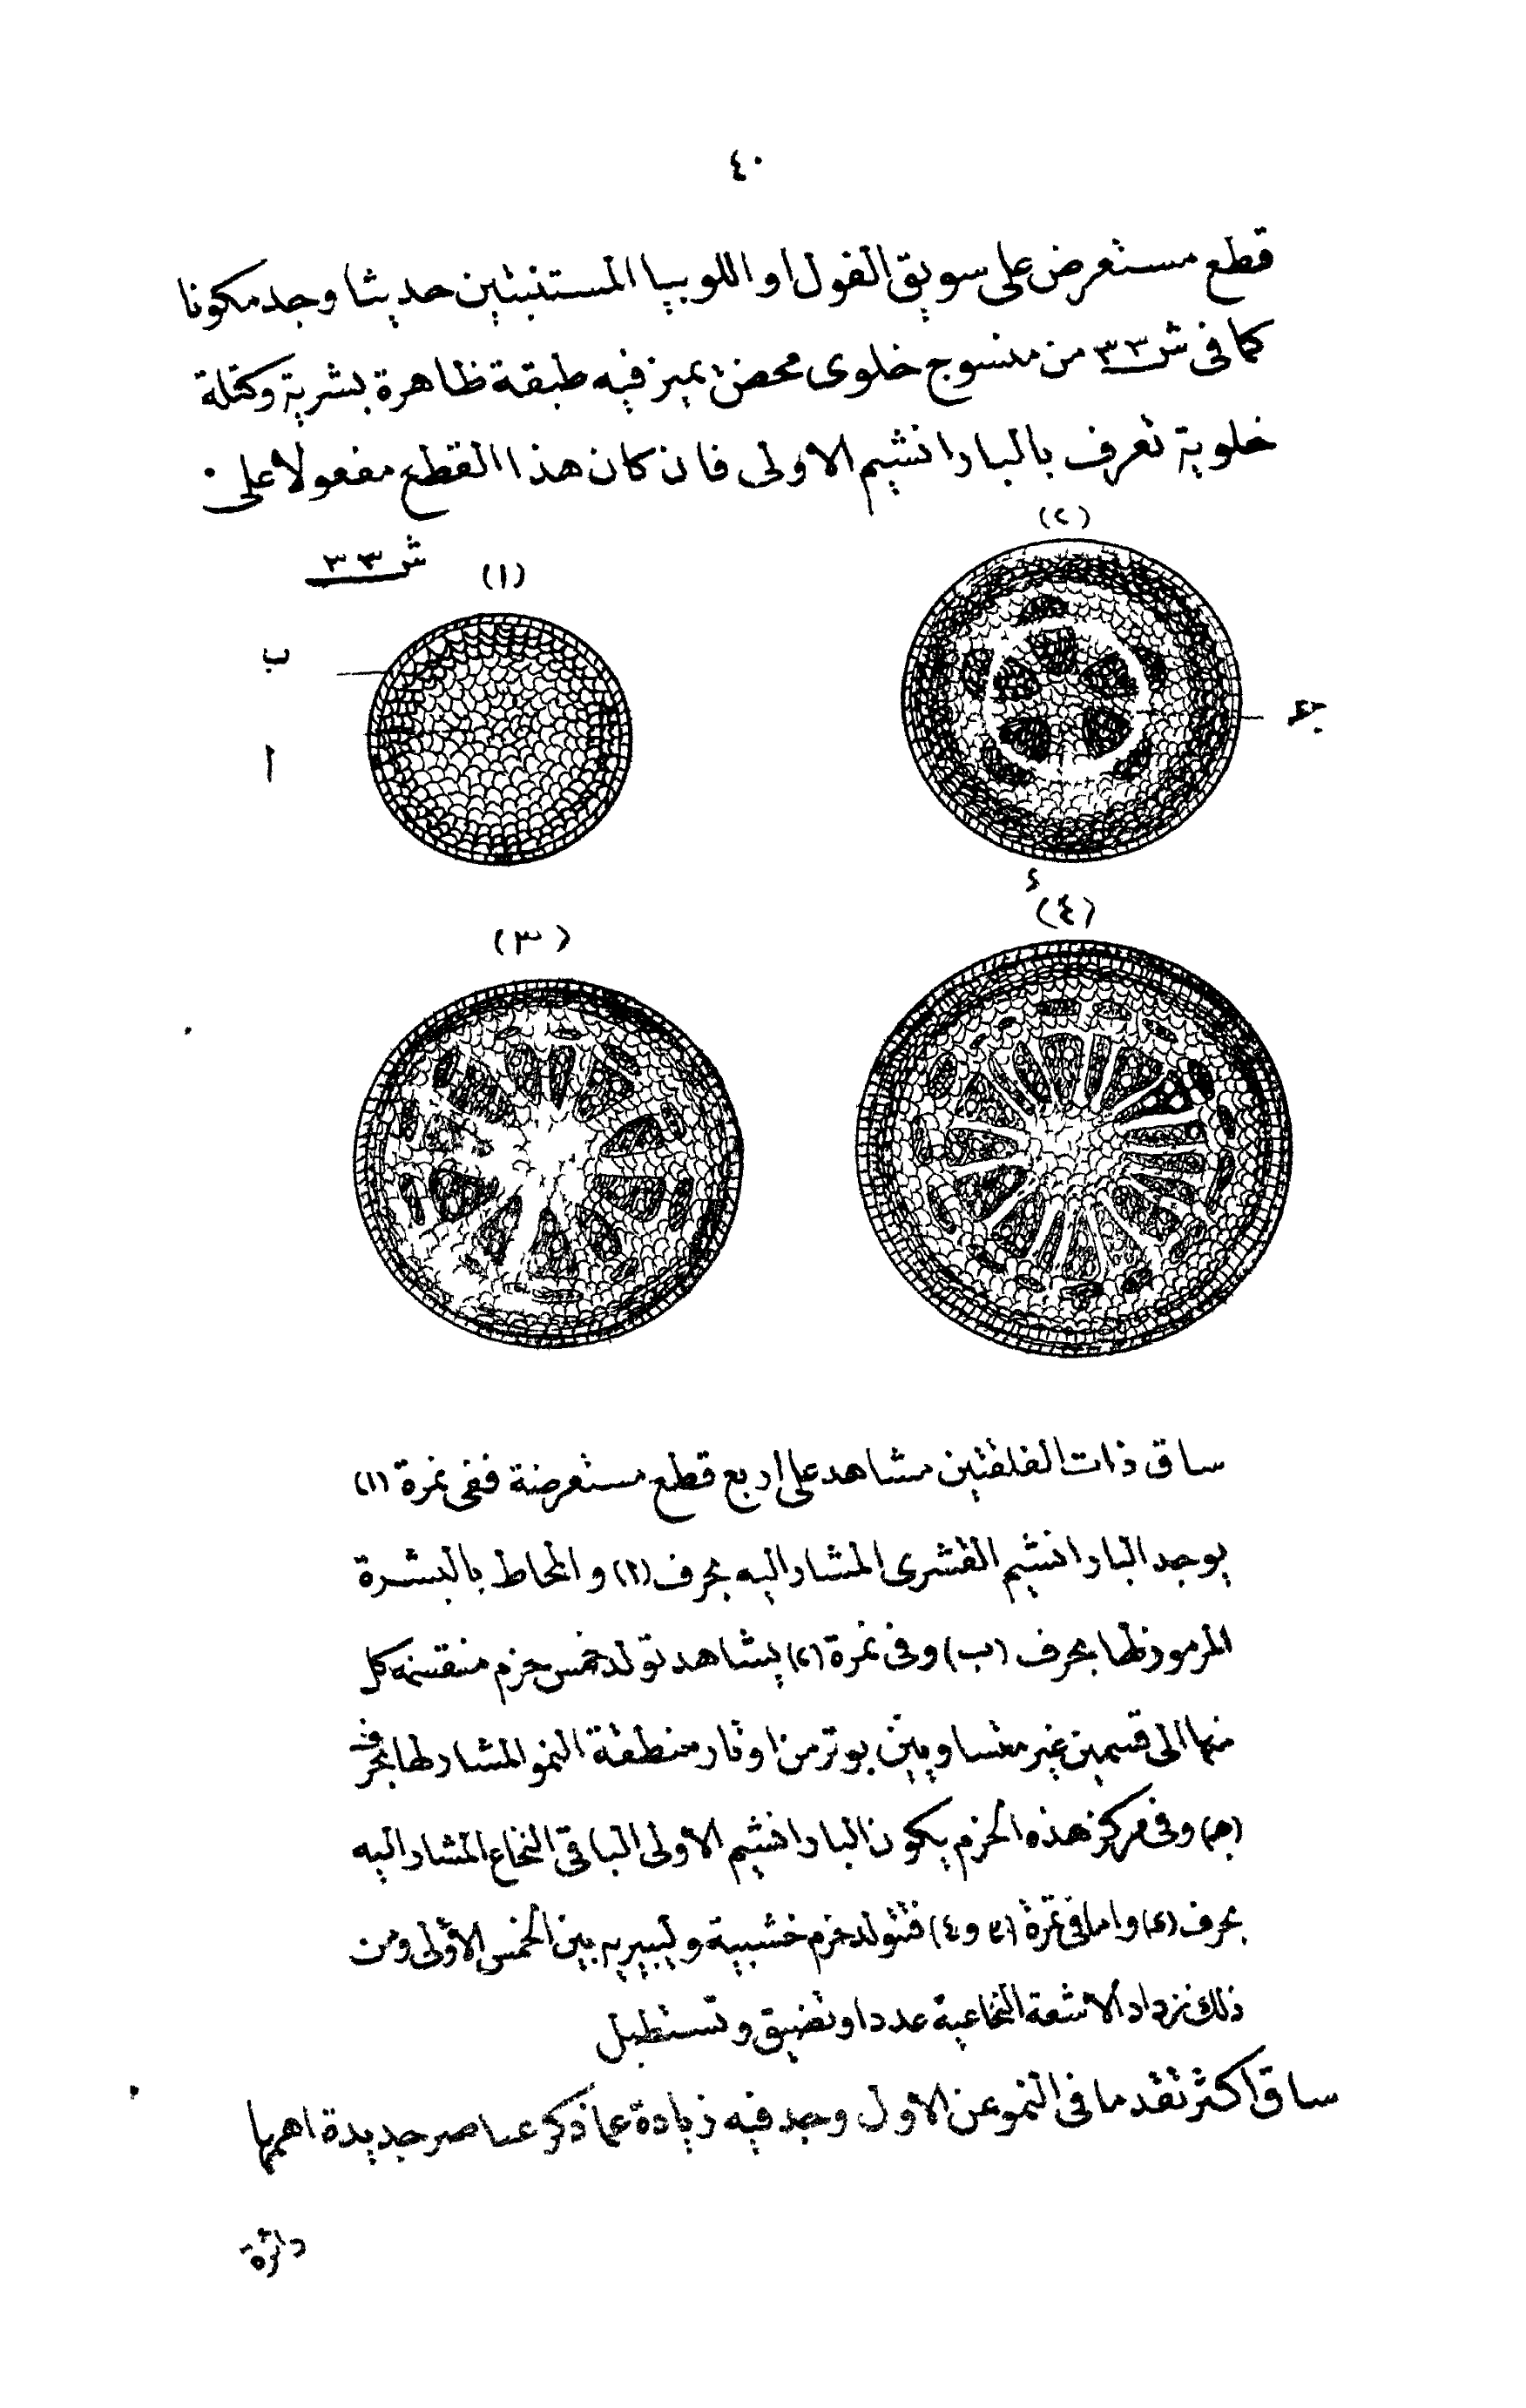 ٤٠
قطع مستعرض على سويق الفول او اللوبيا المستنبتين حديثا وجد مكونا
كما فى ش ٣٣ من منسوج خلوى محض يميز فيه طبقة ظاهرة بشرية وكتلة
خلوية تعرف بالبارانشيم الاولى فان كان هذا القطع مفعولا على
ش ٣٣
(١)
(٢)
ب
ا
ج
د
(٣)
(٤)
ساق ذات الفلقتين مشاهد على اربع قطع مستعرضة ففى نمرة (١)
يوجد البارانشيم القشرى المشار اليه بحرف (ا) والمحاط بالبشرة
المرموز لها بحرف (ب) وفى نمرة (٢) يشاهد تولد خمس حزم منقسمة كل
منها الى قسمين غير متساويين بوتر من اوتار منطقة النمو المشار لها بحرف
(ج) وفى مركز هذه الحزم يكون البارانشيم الاولى الباقى النخاع المشار اليه
بحرف (د) واما فى نمرة (٣ و٤) فتتولد حزم خشبية وليبيرية بين الخمس الأولى ومن
ذلك تزداد الاشعة النخاعية عددا وتضيق وتستطيل
ساق اكثر تقدما فى النمو عن الاول وجد فيه زيادة عما ذكر عناصر جديدة اهمها
دائرة